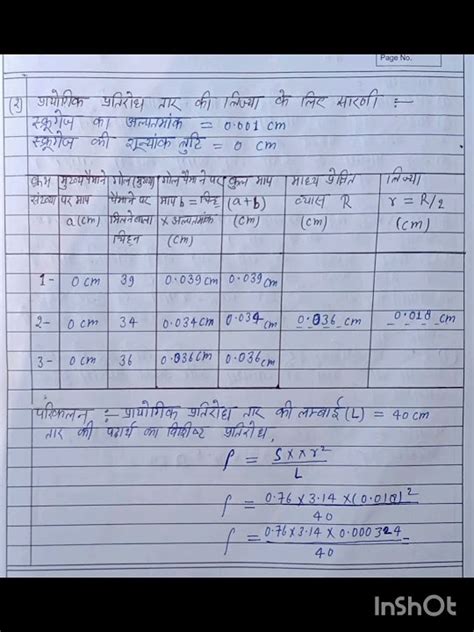 Page No.
(2) प्रायोगिक प्रतिरोध तार की त्रिज्या के लिए सारणी :-
स्क्रूगेज का अल्पतमांक = 0.001 cm
स्क्रूगेज की शून्यांक त्रुटि = 0 cm
क्रम संख्या | मुख्य पैमाने पर माप a (cm) | गोल (वृत्तीय) पैमाने पर मिलने वाला चिह्न | गोल पैमाने पर माप b = चिह्न x अल्पतमांक (cm) | कुल माप (a+b) (cm) | माध्य प्रेक्षित व्यास R (cm) | त्रिज्या r = R/2 (cm)
1- | 0 cm | 39 | 0.039 cm | 0.039 cm
2- | 0 cm | 34 | 0.034 cm | 0.034 cm | 0.036 cm | 0.018 cm
3- | 0 cm | 36 | 0.036 cm | 0.036 cm
परिकलन :- प्रायोगिक प्रतिरोध तार की लम्बाई (L) = 40 cm
तार की पदार्थ का विशिष्ट प्रतिरोध,
ρ = S x π r² / L
ρ = 0.76 x 3.14 x (0.018)² / 40
ρ = 0.76 x 3.14 x 0.000324 / 40
InShOt